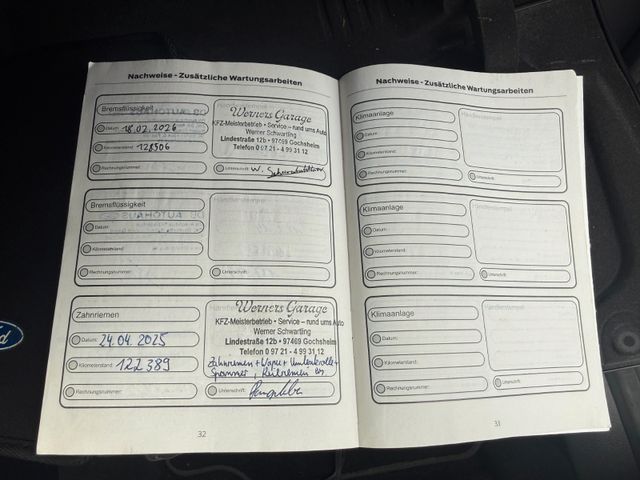 Nachweise - Zusätzliche Wartungsarbeiten
Bremsflüssigkeit
Datum: 18.02.2026
Kilometerstand: 128506
Rechnungsnummer:
Werners Garage
KFZ-Meisterbetrieb • Service – rund ums Auto
Werner Schwartling
Lindestraße 12b • 97469 Gochsheim
Telefon 0 97 21 - 4 99 31 12
Unterschrift: W.
Bremsflüssigkeit
Datum:
Kilometerstand:
Rechnungsnummer:
Händlerstempel
Unterschrift:
Zahnriemen
Datum: 24.04.2025
Kilometerstand: 122389
Rechnungsnummer:
Werners Garage
KFZ-Meisterbetrieb • Service – rund ums Auto
Werner Schwartling
Lindestraße 12b • 97469 Gochsheim
Telefon 0 97 21 - 4 99 31 12
Zahnriemen + Wapu + Umlenkrolle +
Spanner, Keilriemen
Unterschrift:
32
Nachweise - Zusätzliche Wartungsarbeiten
Klimaanlage
Datum:
Kilometerstand:
Rechnungsnummer:
Händlerstempel
Unterschrift:
Klimaanlage
Datum:
Kilometerstand:
Rechnungsnummer:
Händlerstempel
Unterschrift:
Klimaanlage
Datum:
Kilometerstand:
Rechnungsnummer:
Händlerstempel
Unterschrift:
31
Ford